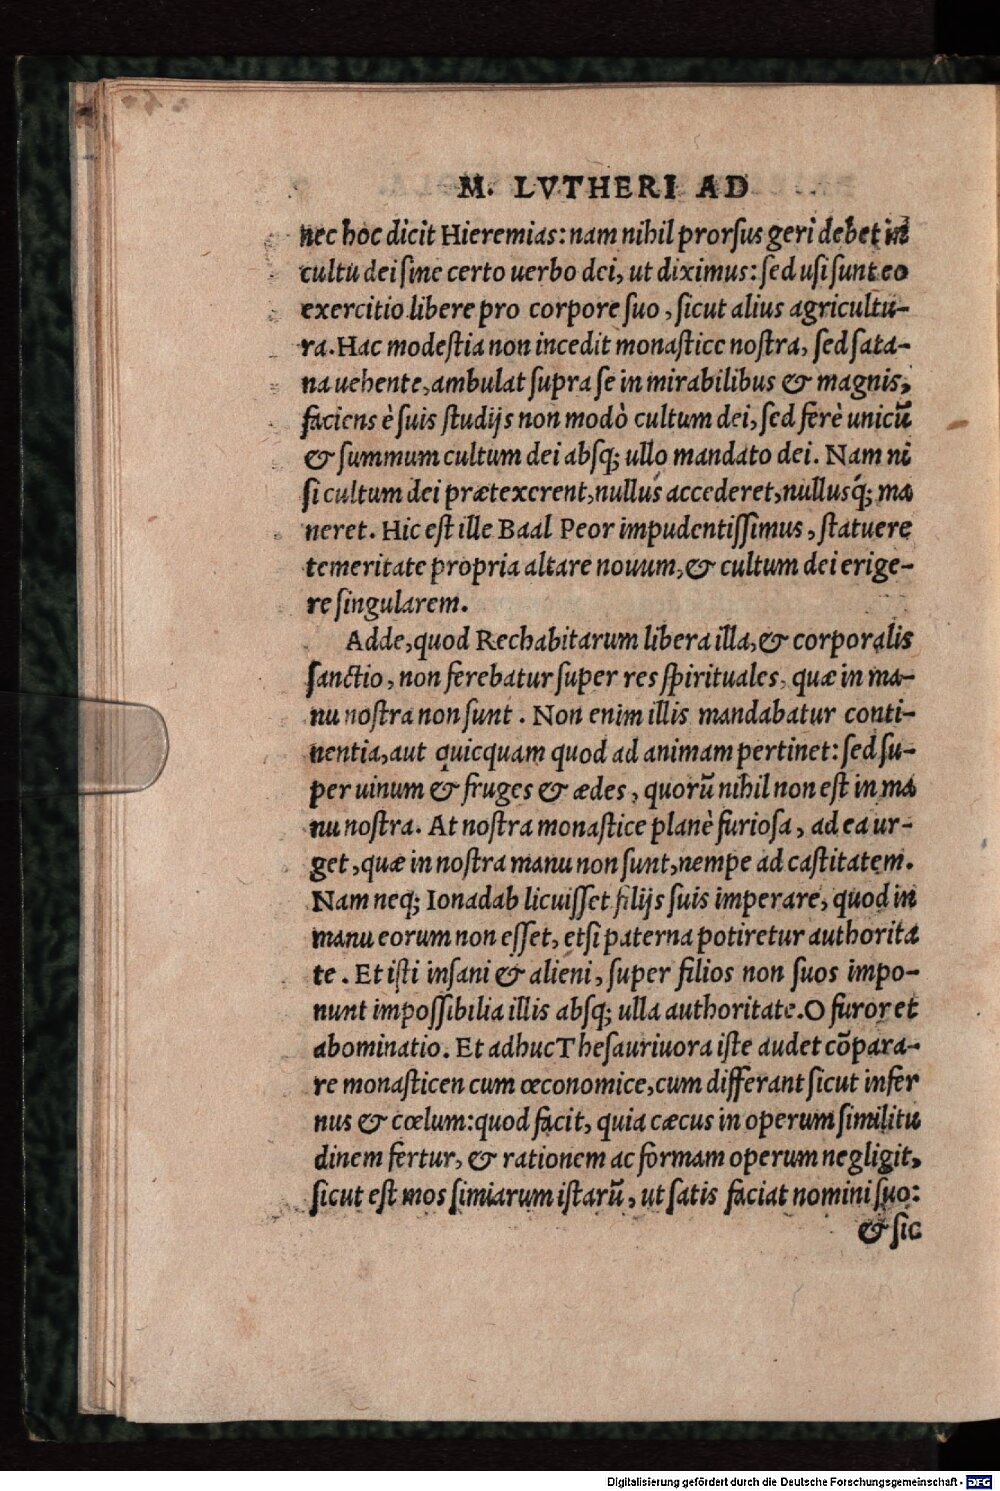 M. LVTHERI AD
nec hoc dicit Hieremias: nam nihil prorſus geri debet in
cultu dei ſine certo uerbo dei, ut diximus: ſed uſi ſunt eo
exercitio libere pro corpore ſuo, ſicut alius agricultu-
ra. Hac modeſtia non incedit monaſtice noſtra, ſed ſata-
na uehente, ambulat ſupra ſe in mirabilibus & magnis,
faciens è ſuis ſtudijs non modò cultum dei, ſed ferè unicū
& ſummum cultum dei abſq; ullo mandato dei. Nam ni
ſi cultum dei prætexerent, nullus accederet, nullusq́; ma
neret. Hic eſt ille Baal Peor impudentiſſimus, ſtatuere
temeritate propria altare nouum, & cultum dei erige-
re ſingularem.
Adde, quod Rechabitarum libera illa, & corporalis
ſanctio, non ferebatur ſuper res ſpirituales, quæ in ma-
nu noſtra non ſunt. Non enim illis mandabatur conti-
nentia, aut quicquam quod ad animam pertinet: ſed ſu-
per uinum & fruges & ædes, quorū nihil non eſt in ma
nu noſtra. At noſtra monaſtice planè furioſa, ad ea ur-
get, quæ in noſtra manu non ſunt, nempe ad caſtitatem.
Nam neq; Ionadab licuiſſet filijs ſuis imperare, quod in
manu eorum non eſſet, etſi paterna potiretur authorita
te. Et iſti inſani & alieni, ſuper filios non ſuos impo-
nunt impoſſibilia illis abſq; ulla authoritate. O furor et
abominatio. Et adhuc Theſauriuora iſte audet cōpara-
re monaſticen cum œconomice, cum differant ſicut infer
nus & cœlum: quod facit, quia cæcus in operum ſimilitu
dinem fertur, & rationem ac formam operum negligit,
ſicut eſt mos ſimiarum iſtarū, ut ſatis faciat nomini ſuo:
& ſic
Digitalisierung gefördert durch die Deutsche Forschungsgemeinschaft - DFG